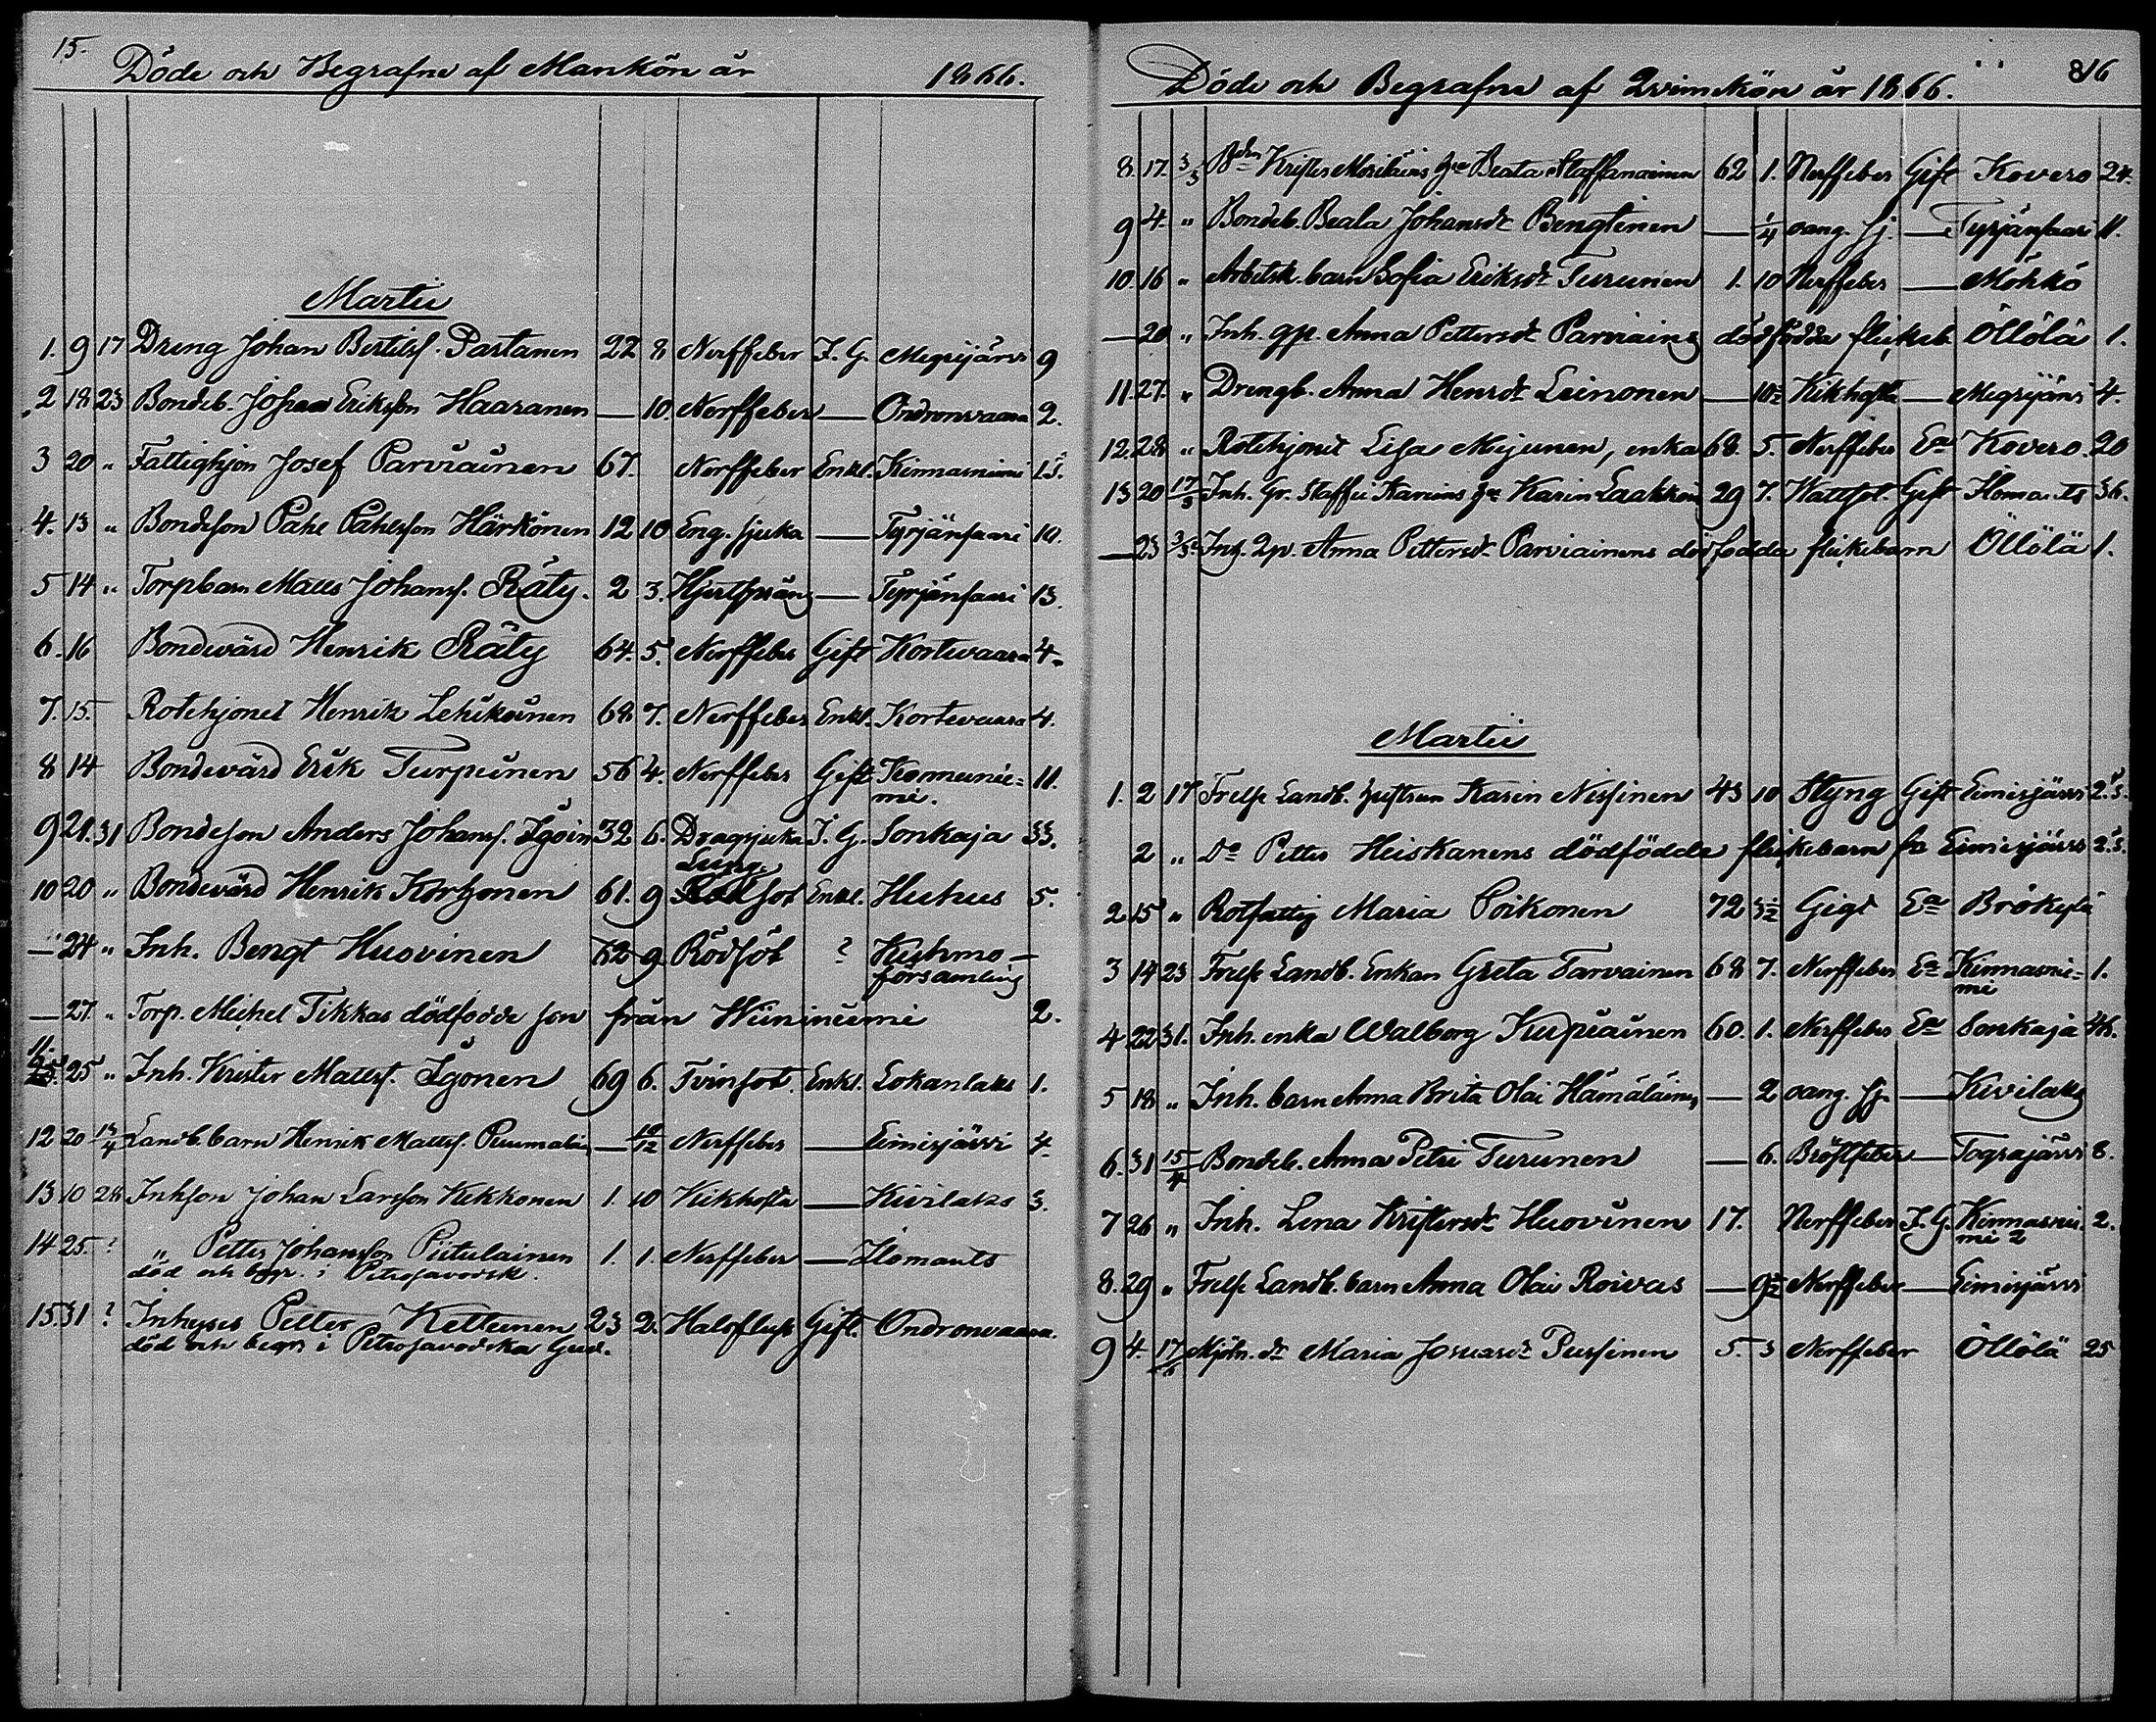 15.
Döde och Begrafne af Mankön år 1866.
Martii
1. 9 17 Dreng Johan Bertilsf. Partanen 22 8 Nerffeber I. G. Megrijärvi 9
2 18 23 Bondeb. Johan Eriksson Haaranen — 10. Nerffeber — Ondronvaara 2.
3 20 " Fattighjon Josef Parviainen 67. Nerffeber Enkl. Kinnasniemi 15.
4. 13 " Bondeson Påhl Påhlsson Härkönen 12 10 Eng. sjuka — Tyrjänsaari 10.
5 14 " Torpbarn Matts Johansf. Räty. 2 3. Hjertsprång — Tyrjänsaari 13.
6. 16 Bondevärd Henrik Räty 64. 5. Nerffeber Gift Kortevaara 4.
7. 15. Rotehjonet Henrik Lehikoinen 68 7. Nerffeber Enkl. Kortevaara 4.
8 14 Bondevärd Erik Turpeinen 56 4. Nerffeber Gift
11.
9 21. 31 Bondeson Anders Johansf. Igoin 32 6. Dragsjuka I. G. Sonkaja 33.
Lung
10 20 " Bondevärd Henrik Korhonen 61. 9 sot Enkl. Huhus 5.
— 24 " Inh. Bengt Huovinen 62 9 Rödsot ? Kuhmo —
församling
— 27. " Torp. Michel Tikkas dödfödde son från Hiininiemi 2.
11.
25 " Inh. Krister Mattsf. Igonen 69 6. Tvinsot Enkl. Lokanlaks 1.
12 20 13/4 Landb. barn Henrik Mattsf. Puumalain — 10/12 Nerffeber — Eimisjärvi 4.
13 10 24 Inhson Johan Larsson Kekkonen 1. 10 Kikhosta — Kivilaks 3.
14 25. ? " Petter Johansson Piitulainen 1. 1. Nerffeber — Ilomants
död och begr. i Petrosavodsk.
15. 31 ? Inhyses Petter Kettunen 23 2. Halsfluss Gift. Ondronvaara.
död och begr i Petrosavodska Guv.
816
Döde och Begrafne af Qvinnkön år 1866.
8. 17. 3/3 Bden Krister Mosikäins hu Beata Staffanainen 62 1. Nerffeber Gift Kovero 24.
9 4. " Bondeb. Beata Johansdr Bengtinen — 1/4 oang. sj. — Tyrjänsaari 11.
10 16 " Arbetsk. barn Sofia Eriksdr Turunen 1. 10 Nerffeber — Möhkö
— 20 " Inh. qp. Anna Pettersdr Parviains dödfödda flickeb Öllölä 1.
11. 27. " Drengb. Anna Henrsdr Leinonen — 10½ Kikhosta — Megrijärvi 4.
12. 28 " Rotehjonet Lisa Meijunen, enka 68. 5. Nerffeber Ea Kovero. 20
13 20 17/3 Inh. Gr. Staffan hu Karin Laakkoin 29 7. Vattsot. Gift Ilomants 36.
— 23 3/3 Inh. Qp. Anna Pettersdr Parviainens dödfödda flickebarn Öllölä 1.
Martii
1. 2 17 Frelse Landb. hustrun Karin Nissinen 43 10 Styng Gift Eimisjärvi 2.
2 " Do Petter Heiskanens dödfödda flickebarn fr Eimisjärvi 2.
2 15 " Rotfattig Maria Poikonen 72 3½ Gigt Ea Brökylä
3 14 23 Frelse Landb. Enkan Greta Tarvainen 68 7. Nerffeber Ea Kinnasnie= 1.
mi
4 22 31. Inh. enka Walborg Kupiainen 60. 1. Nerffeber Ea Sonkaja 46.
5 18 " Inh. barn Anna Brita Olai Hämäläinen — 2 oang. sj. — Kivilaks
6. 31 15/4 Bondeb. Anna Petri Turunen — 6. Bröstfeber — Tograjärvi 8.
7 26 " Inh. Lena Kristersdr Huovinen 17. Nerffeber I. G. Kinnasnie 2.
mi 2
8. 29 " Frelse Landb. barn Anna Olai Roivas — 9½ Nerffeber — Eimisjärvi
9 4. 17/6 Mjöln. dr Maria Josuasdr Pussinen 5. 3 Nerffeber Öllölä 25